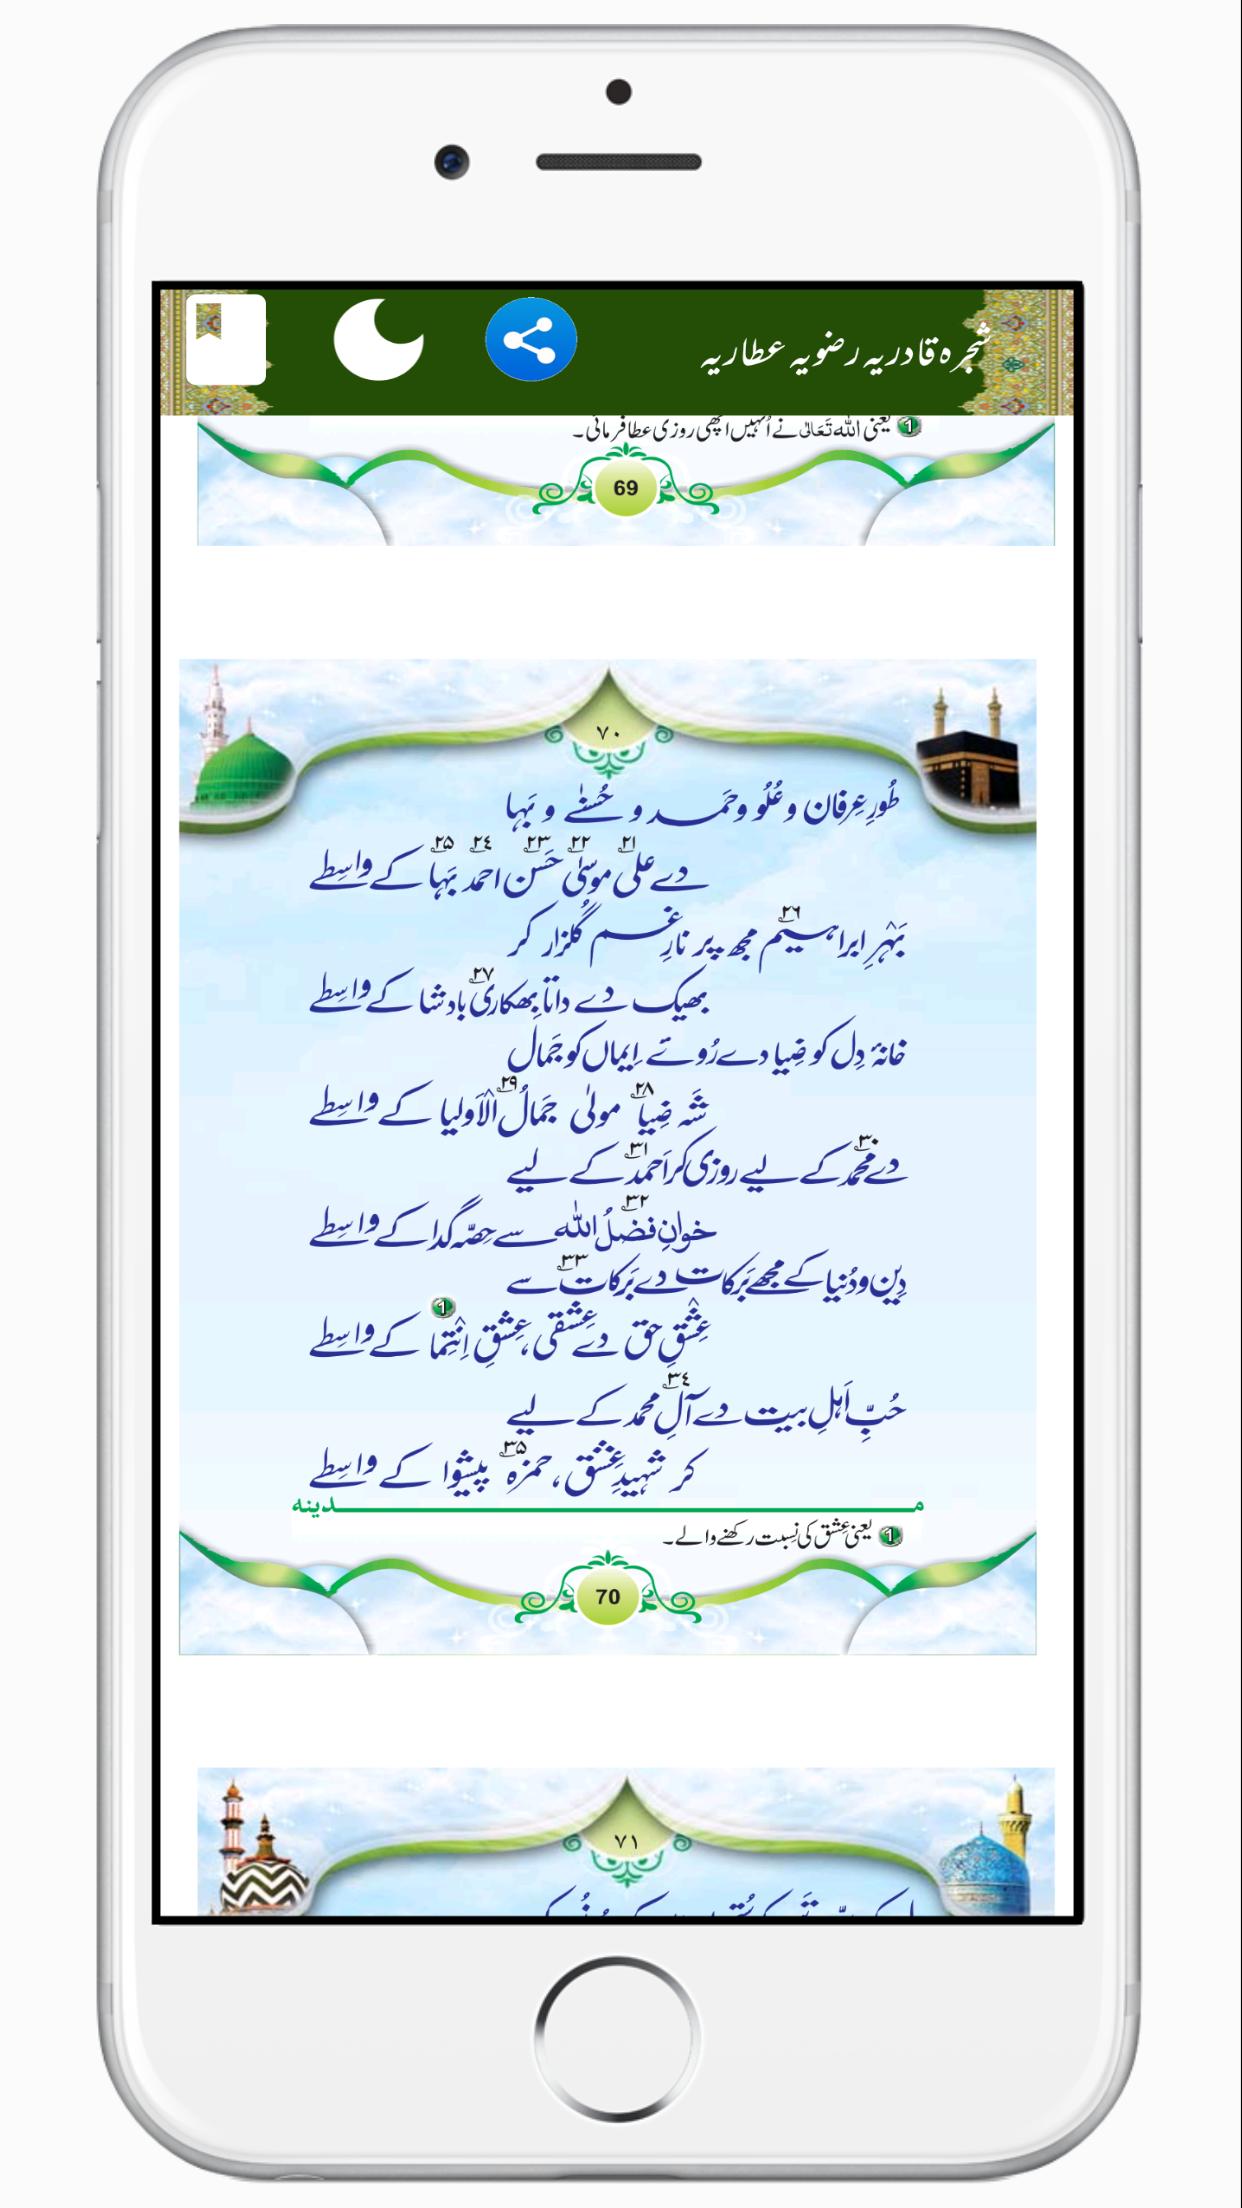 شجرہ قادریہ رضویہ عطاریہ
1 یعنی اللہ تَعَالٰی نے اُنہیں اچھی روزی عطا فرمائی۔
69
٧٠
طُورِ عِرفان و عُلُو و حَمد و حُسنٰے و بَہا
دے علی٢١ موسیٰ٢٢ حَسَن٢٣ احمد٢٤ بَہا٢٥ کے واسِطے
بَہْرِ ابراہیم٢٦ مجھ پر نارِ غم گُلزار کر
بھیک دے داتا بِھکاری٢٧ بادشا کے واسِطے
خانۂ دِل کو ضِیا دے رُوئے اِیماں کو جَمال
شَہ ضِیا٢٨ مولیٰ جَمالُ الْاَولیا٢٩ کے واسِطے
دے محمد٣٠ کے لیے روزی کر اَحمد٣١ کے لیے
خوانِ فضلُ اللّٰہ٣٢ سے حِصّہ گدا کے واسِطے
دِین و دُنیا کے مجھے بَرَکات دے بَرَکات٣٣ سے
عِشْقِ حق دے عِشقی، عِشقِ اِنْتِما 1 کے واسِطے
حُبِّ اَہلِ بیت دے آلِ محمد٣٤ کے لیے
کر شہیدِ عِشْق، حمزہ٣٥ پیشوا کے واسِطے
مدینہ
1 یعنی عِشق کی نِسبت رکھنے والے۔
70
٧١